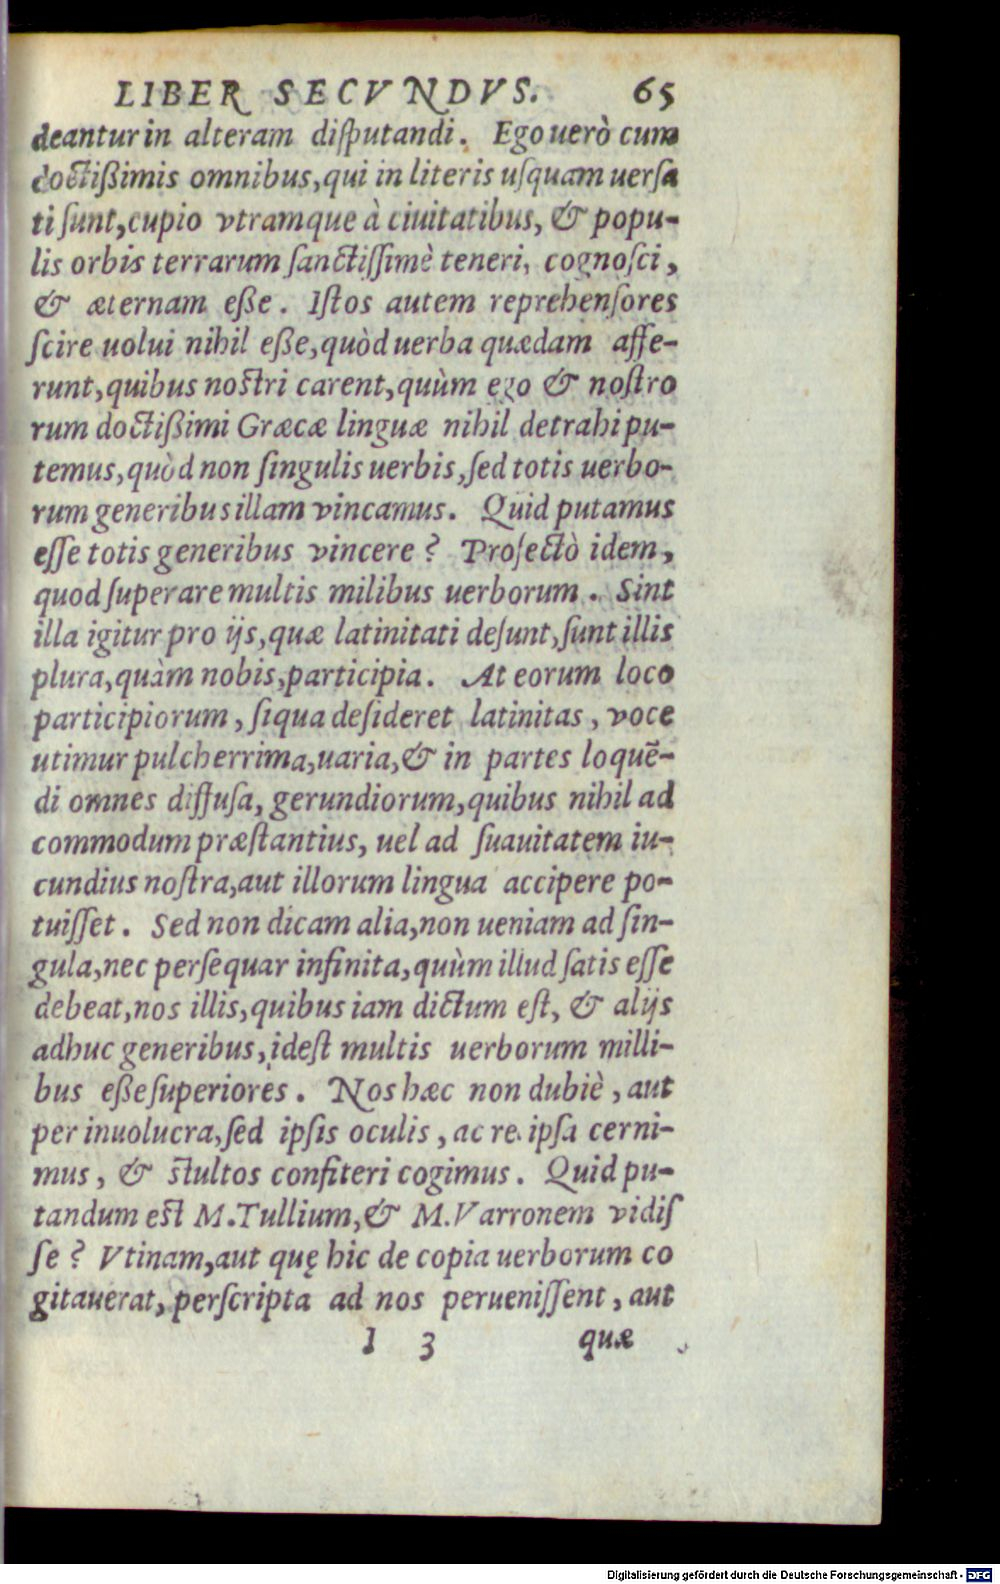 LIBER SECVNDVS. 65
deantur in alteram diſputandi. Ego uerò cum
doctißimis omnibus, qui in literis uſquam uerſa
ti ſunt, cupio vtramque à ciuitatibus, & popu-
lis orbis terrarum ſanctiſſimè teneri, cognoſci,
& æternam eße. Iſtos autem reprehenſores
ſcire uolui nihil eße, quòd uerba quædam affe-
runt, quibus noſtri carent, quùm ego & noſtro
rum doctißimi Græcæ linguæ nihil detrahi pu-
temus, quòd non ſingulis uerbis, ſed totis uerbo-
rum generibus illam vincamus. Quid putamus
eſſe totis generibus vincere? Profectò idem,
quod ſuperare multis milibus uerborum. Sint
illa igitur pro ijs, quæ latinitati deſunt, ſunt illis
plura, quàm nobis, participia. At eorum loco
participiorum, ſiqua deſideret latinitas, voce
utimur pulcherrima, uaria, & in partes loquē-
di omnes diffuſa, gerundiorum, quibus nihil ad
commodum præſtantius, uel ad ſuauitatem iu-
cundius noſtra, aut illorum lingua accipere po-
tuiſſet. Sed non dicam alia, non ueniam ad ſin-
gula, nec perſequar infinita, quùm illud ſatis eſſe
debeat, nos illis, quibus iam dictum eſt, & alijs
adhuc generibus, ideſt multis uerborum milli-
bus eße ſuperiores. Nos hæc non dubiè, aut
per inuolucra, ſed ipſis oculis, ac re ipſa cerni-
mus, & ſtultos confiteri cogimus. Quid pu-
tandum eſt M. Tullium, & M. Varronem vidiſ
ſe? Vtinam, aut quę hic de copia uerborum co
gitauerat, perſcripta ad nos perueniſſent, aut
I 3 quæ
Digitalisierung gefördert durch die Deutsche Forschungsgemeinschaft - DFG